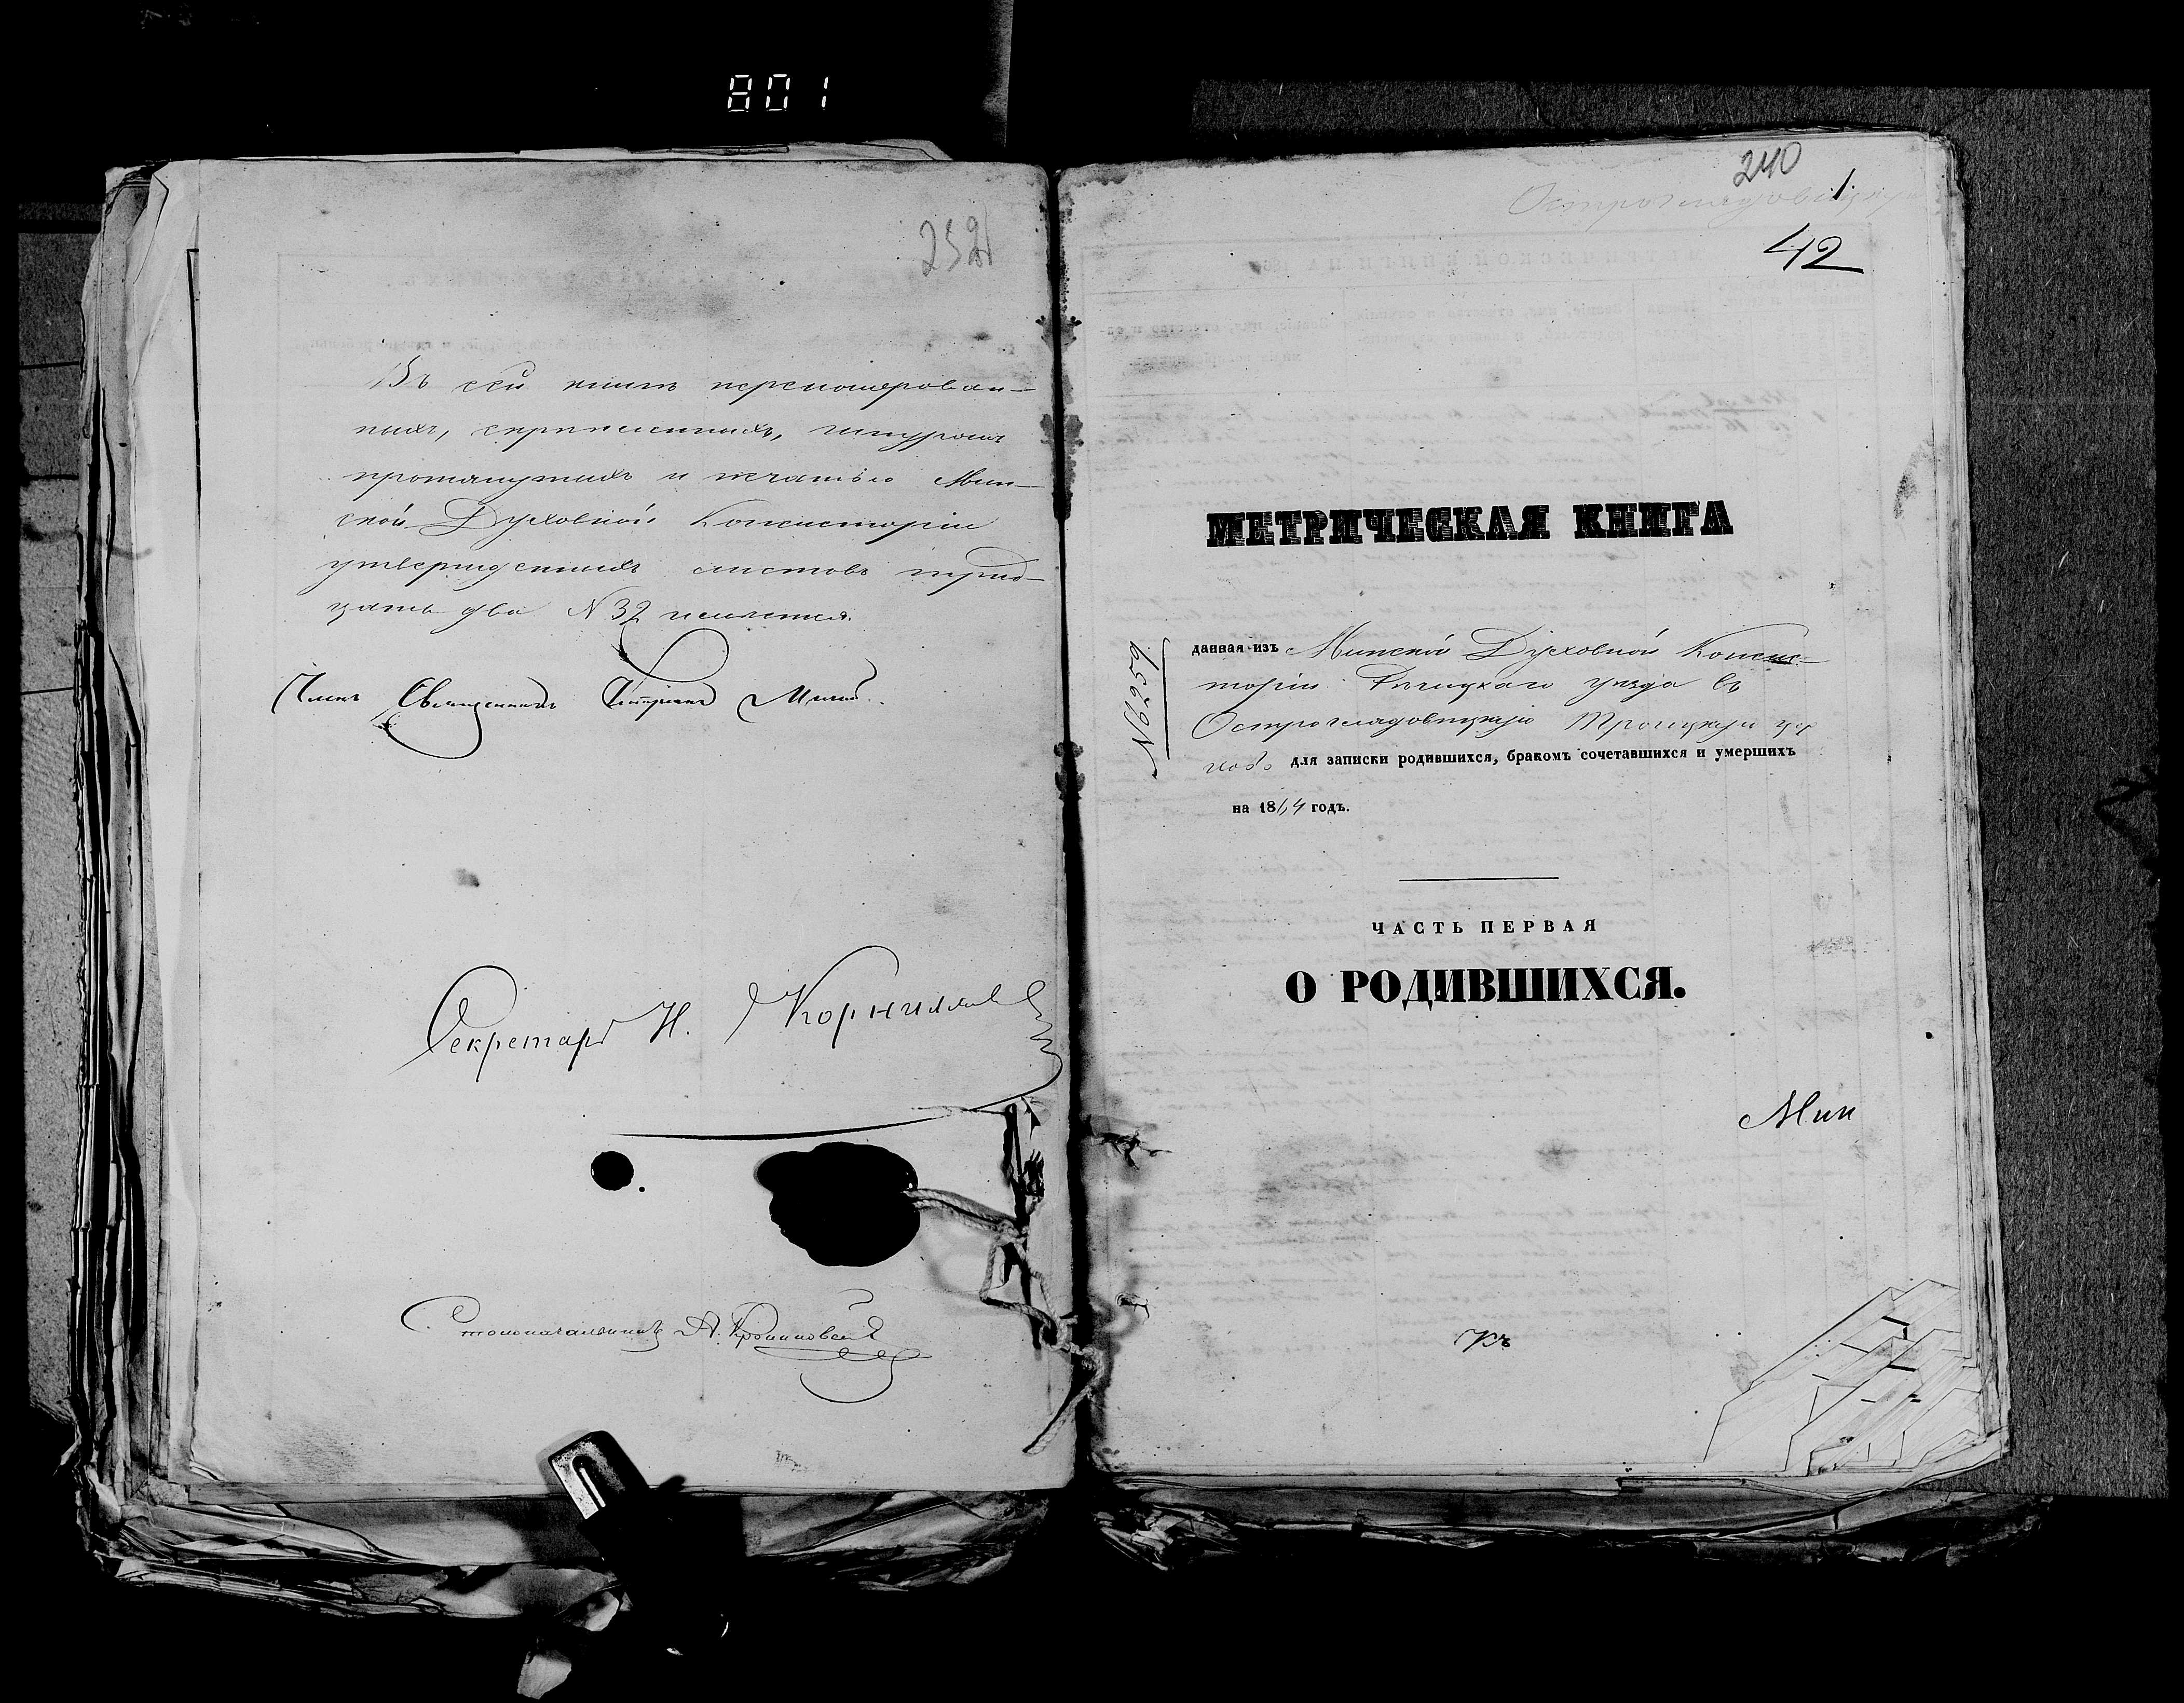 801
252
Въ сей книгѣ перенумерован-
ныхъ, скрѣпленныхъ, шнуромъ
протянутыхъ и печатью Мин-
ской Духовной Консисторіи
утвержденныхъ листовъ трид-
цать два N 32 числится.
Членъ Священникъ
Секретарь Н. Корниловъ
Столоначальникъ А.
240
1
Острогладовицкую
42
МЕТРИЧЕСКАЯ КНИГА
№ 6259
данная изъ Минской Духовной Консис-
торіи Рѣчицкаго уѣзда въ
Острогладовицкую Троицкую цер
ковь для записки родившихся, бракомъ сочетавшихся и умершихъ
на 1864 годъ.
ЧАСТЬ ПЕРВАЯ
О РОДИВШИХСЯ.
Мин